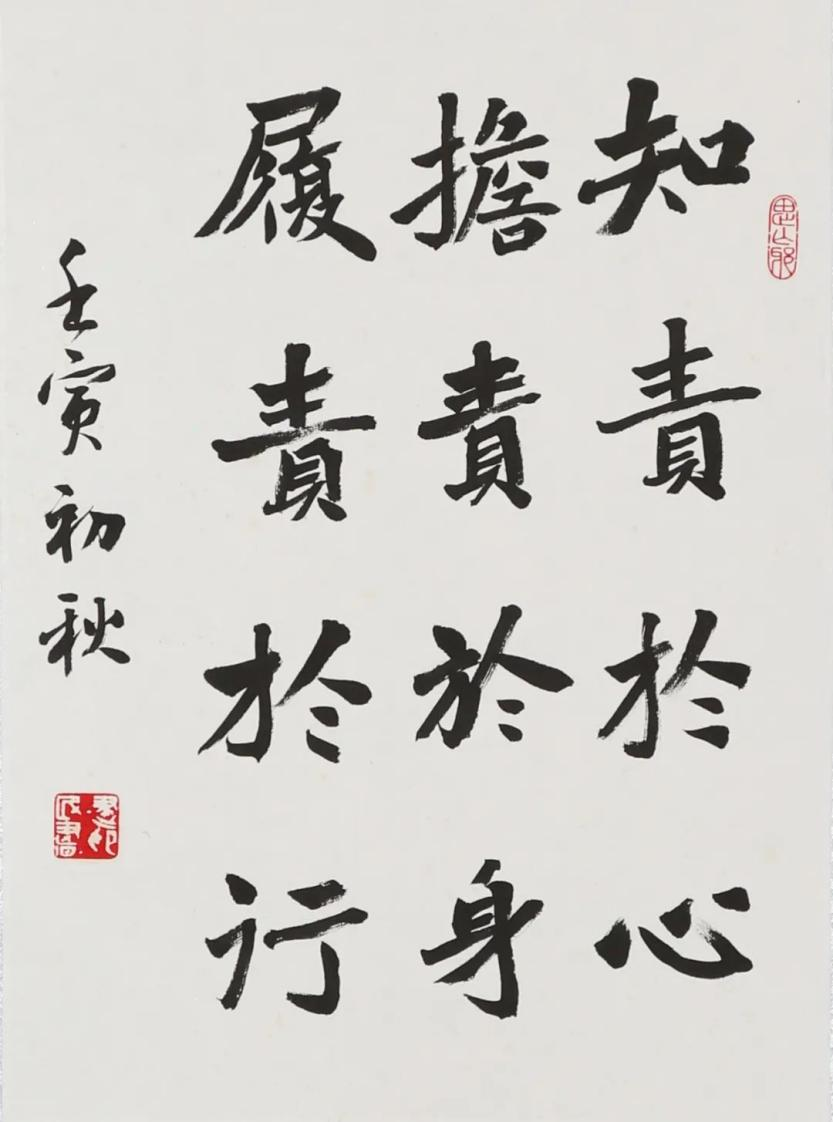 知責於心
擔責於身
履責於行
壬寅初秋